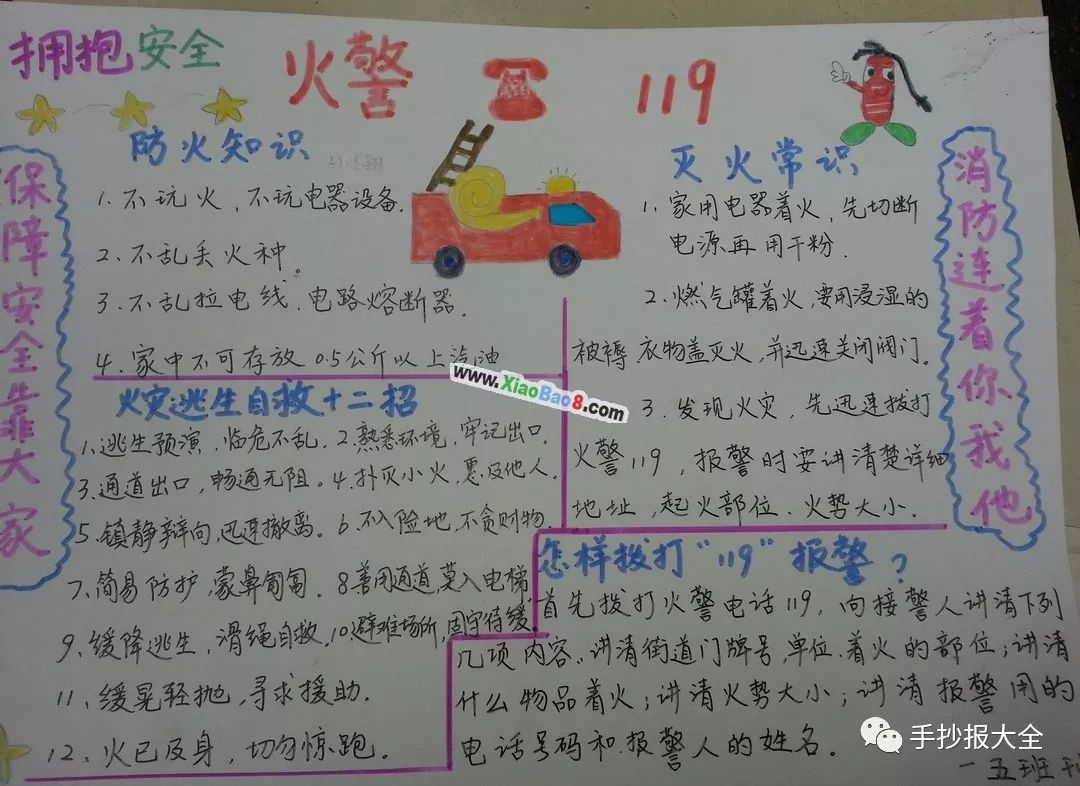 拥抱安全
火警
119
保障安全靠大家
防火知识
1.不玩火、不玩电器设备.
2.不乱丢火种。
3.不乱拉电线.电路熔断器.
4.家中不可存放0.5公斤以上汽油
www.XiaoBao8.com
灭火常识
1.家用电器着火,先切断
电源再用干粉.
2.燃气罐着火,要用浸湿的
被褥衣物盖灭火,并迅速关闭阀门.
3.发现火灾,先迅速拔打
火警119,报警时要讲清楚详细
地址,起火部位、火势大小.
消防连着你我他
火灾逃生自救十二招
1.逃生预演,临危不乱.2.熟悉环境,牢记出口.
3.通道出口,畅通无阻。4.扑灭小火,惠及他人.
5.镇静辩向,迅速撤离。6.不入险地,不贪财物.
7.简易防护,蒙鼻匍匐.8善用通道,莫入电梯.
9.缓降逃生,滑绳自救.10.避难场所,固守待缓.
11、缓晃轻抛,寻求援助.
12.火已及身,切勿惊跑.
怎样拨打"119"报警?
首先拔打火警电话119,向接警人讲清下列
几项内容.讲清街道门牌号,单位.着火的部位;讲清
什么物品着火;讲清火势大小;讲清报警用的
电话号码和报警人的姓名.
手抄报大全
一五班